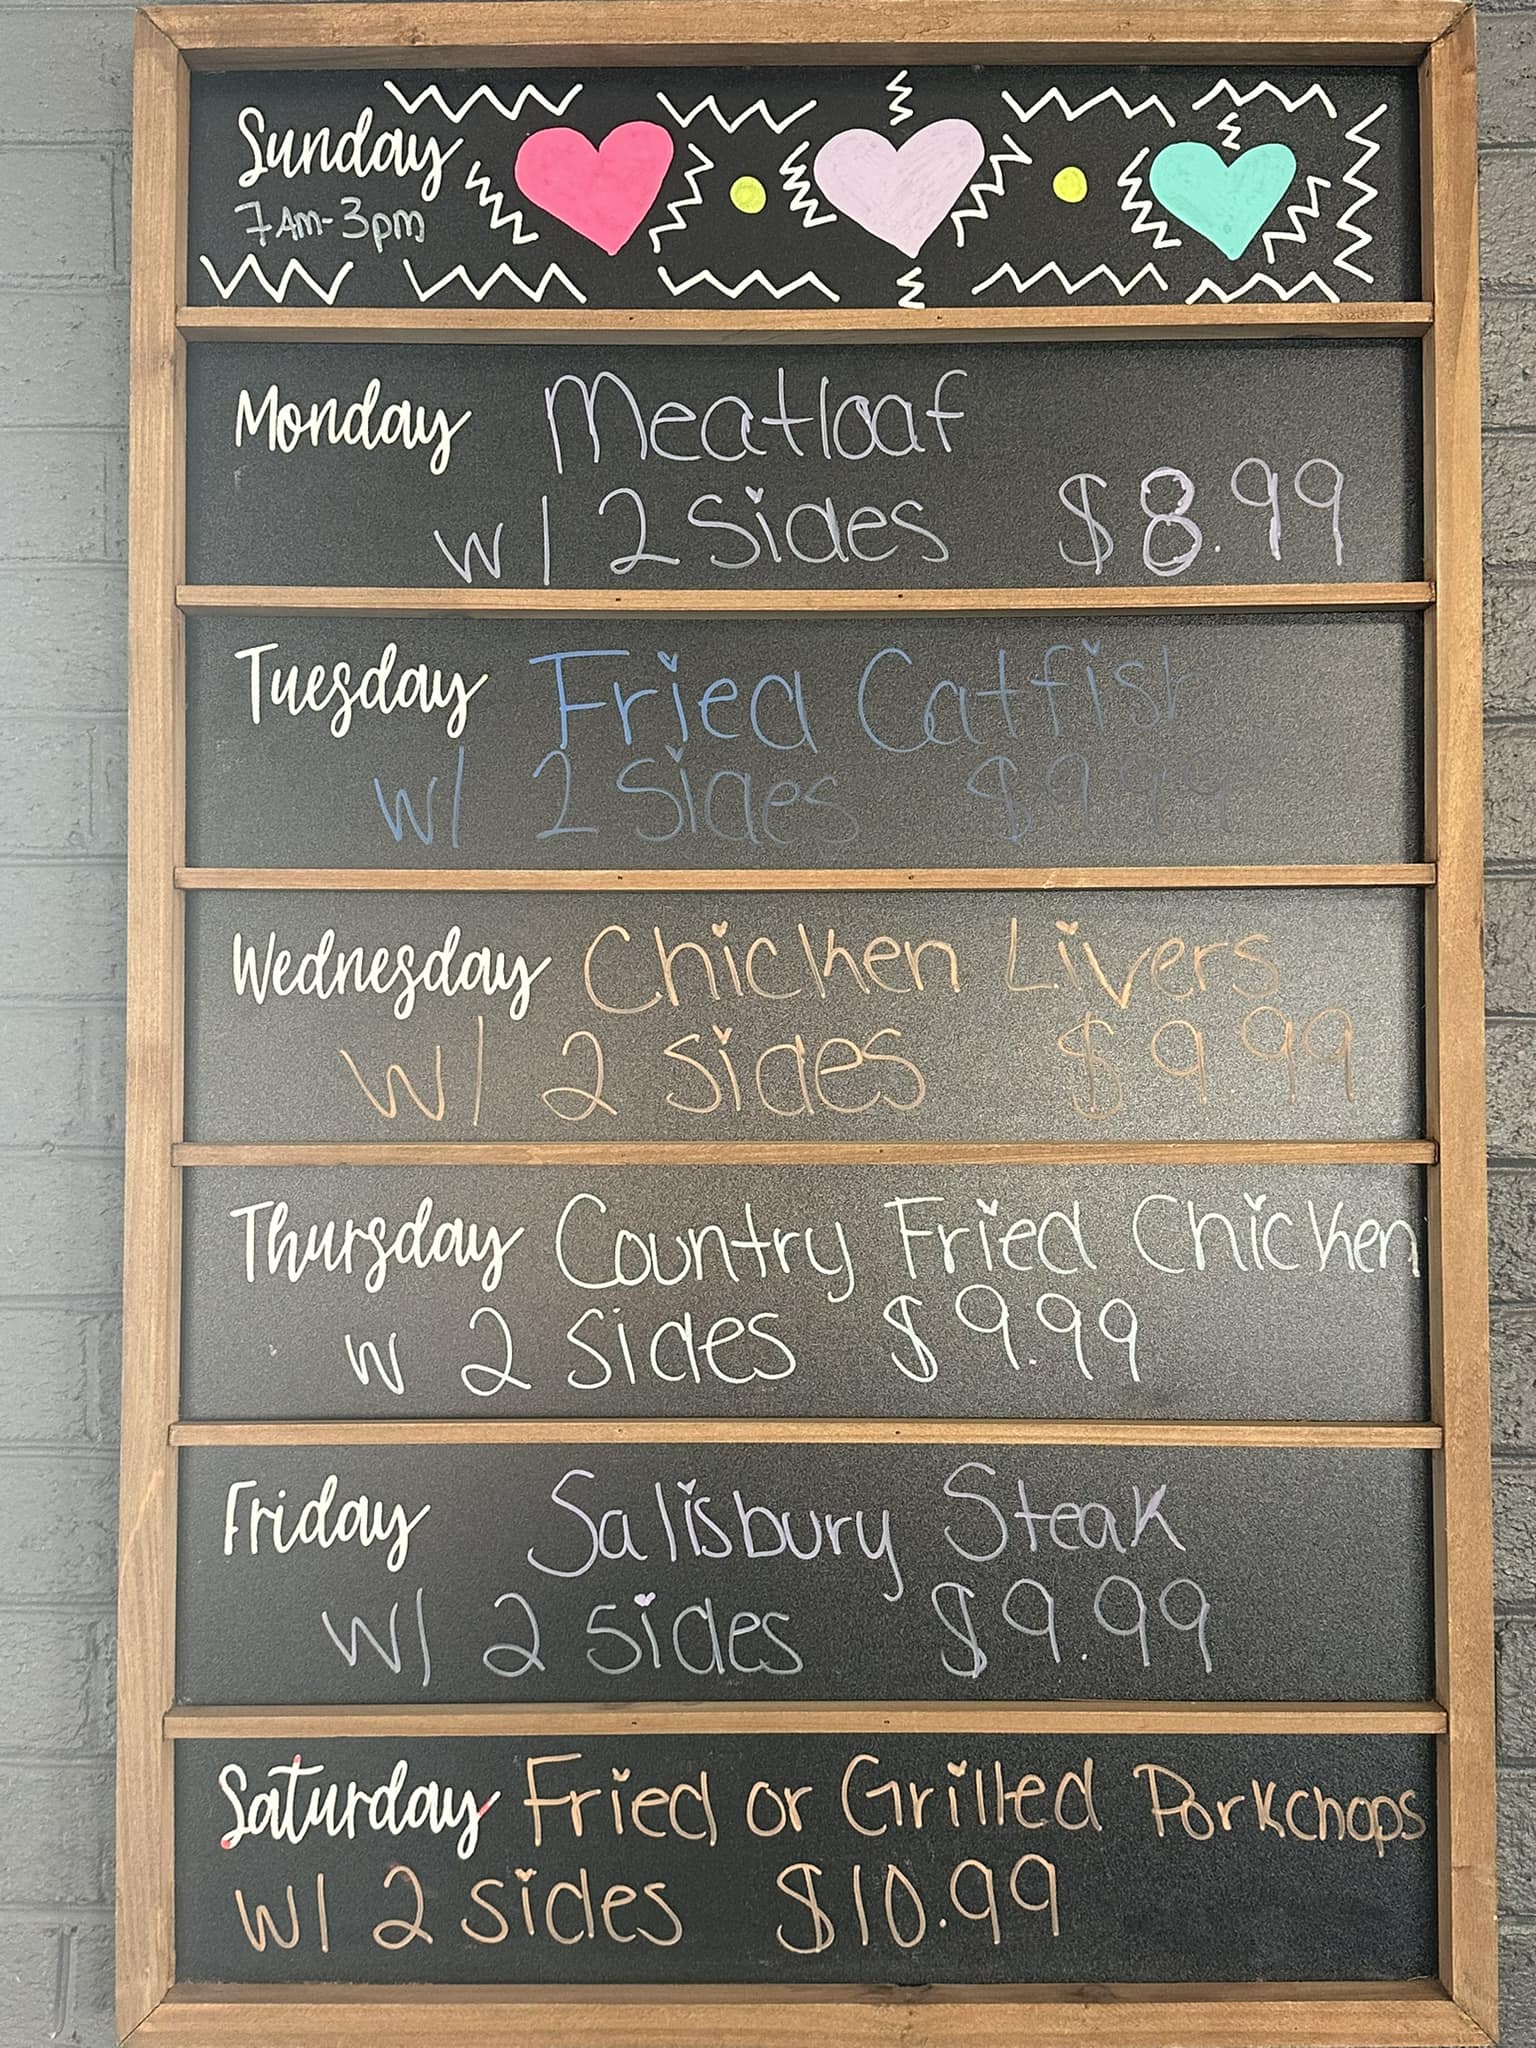 Sunday
7Am-3pm
Monday Meatloaf
w/ 2 Sides $8.99
Tuesday Fried Catfish
w/ 2 Sides $9.99
Wednesday Chicken Livers
w/ 2 Sides $9.99
Thursday Country Fried Chicken
w 2 Sides $9.99
Friday Salisbury Steak
w/ 2 Sides $9.99
Saturday Fried or Grilled Porkchops
w/ 2 Sides $10.99